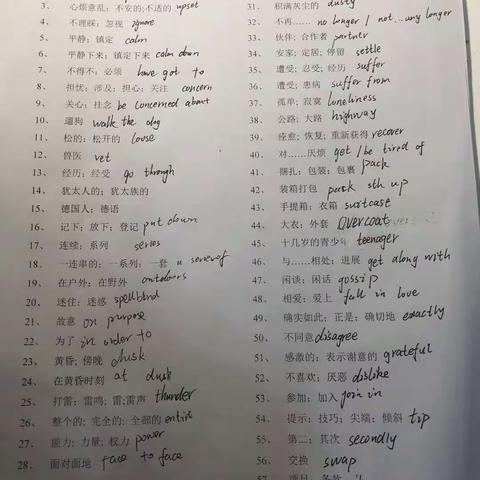 3、 心烦意乱；不安的；不适的 upset
4、 不理睬；忽视 ignore
5、 平静；镇定 calm
6、 平静下来；镇定下来 calm down
7、 不得不；必须 have got to
8、 担忧；涉及；担心；关注 concern
9、 关心；挂念 be concerned about
10、 遛狗 walk the dog
11、 松的；松开的 loose
12、 兽医 vet
13、 经历；经受 go through
14、 犹太人的；犹太族的
15、 德国人；德语
16、 记下；放下；登记 put down
17、 连续；系列 series
18、 一连串的；一系列；一套 a series of
19、 在户外；在野外 outdoors
20、 迷住；迷惑 spellbind
21、 故意 on purpose
22、 为了 in order to
23、 黄昏；傍晚 dusk
24、 在黄昏时刻 at dusk
25、 打雷；雷鸣；雷；雷声 thunder
26、 整个的；完全的；全部的 entire
27、 能力；力量；权力 power
28、 面对面地 face to face
31、 积满灰尘的 dusty
32、 不再…… no longer / not...any longer
33、 伙伴；合作者 partner
34、 安家；定居；停留 settle
35、 遭受；忍受；经历 suffer
36、 遭受；患病 suffer from
37、 孤单；寂寞 loneliness
38、 公路；大路 highway
39、 痊愈；恢复；重新获得 recover
40、 对……厌烦 get /be tired of
41、 捆扎；包装；包裹 pack
42、 装箱打包 pack sth up
43、 手提箱；衣箱 suitcase
44、 大衣；外套 overcoat
45、 十几岁的青少年 teenager
46、 与……相处；进展 get along with
47、 闲谈；闲话 gossip
48、 相爱；爱上 fall in love
49、 确实如此；正是；确切地 exactly
50、 不同意 disagree
51、 感激的；表示谢意的 grateful
52、 不喜欢；厌恶 dislike
53、 参加；加入 join in
54、 提示；技巧；尖端；倾斜 tip
55、 第二；其次 secondly
56、 交换 swap
57、 项目